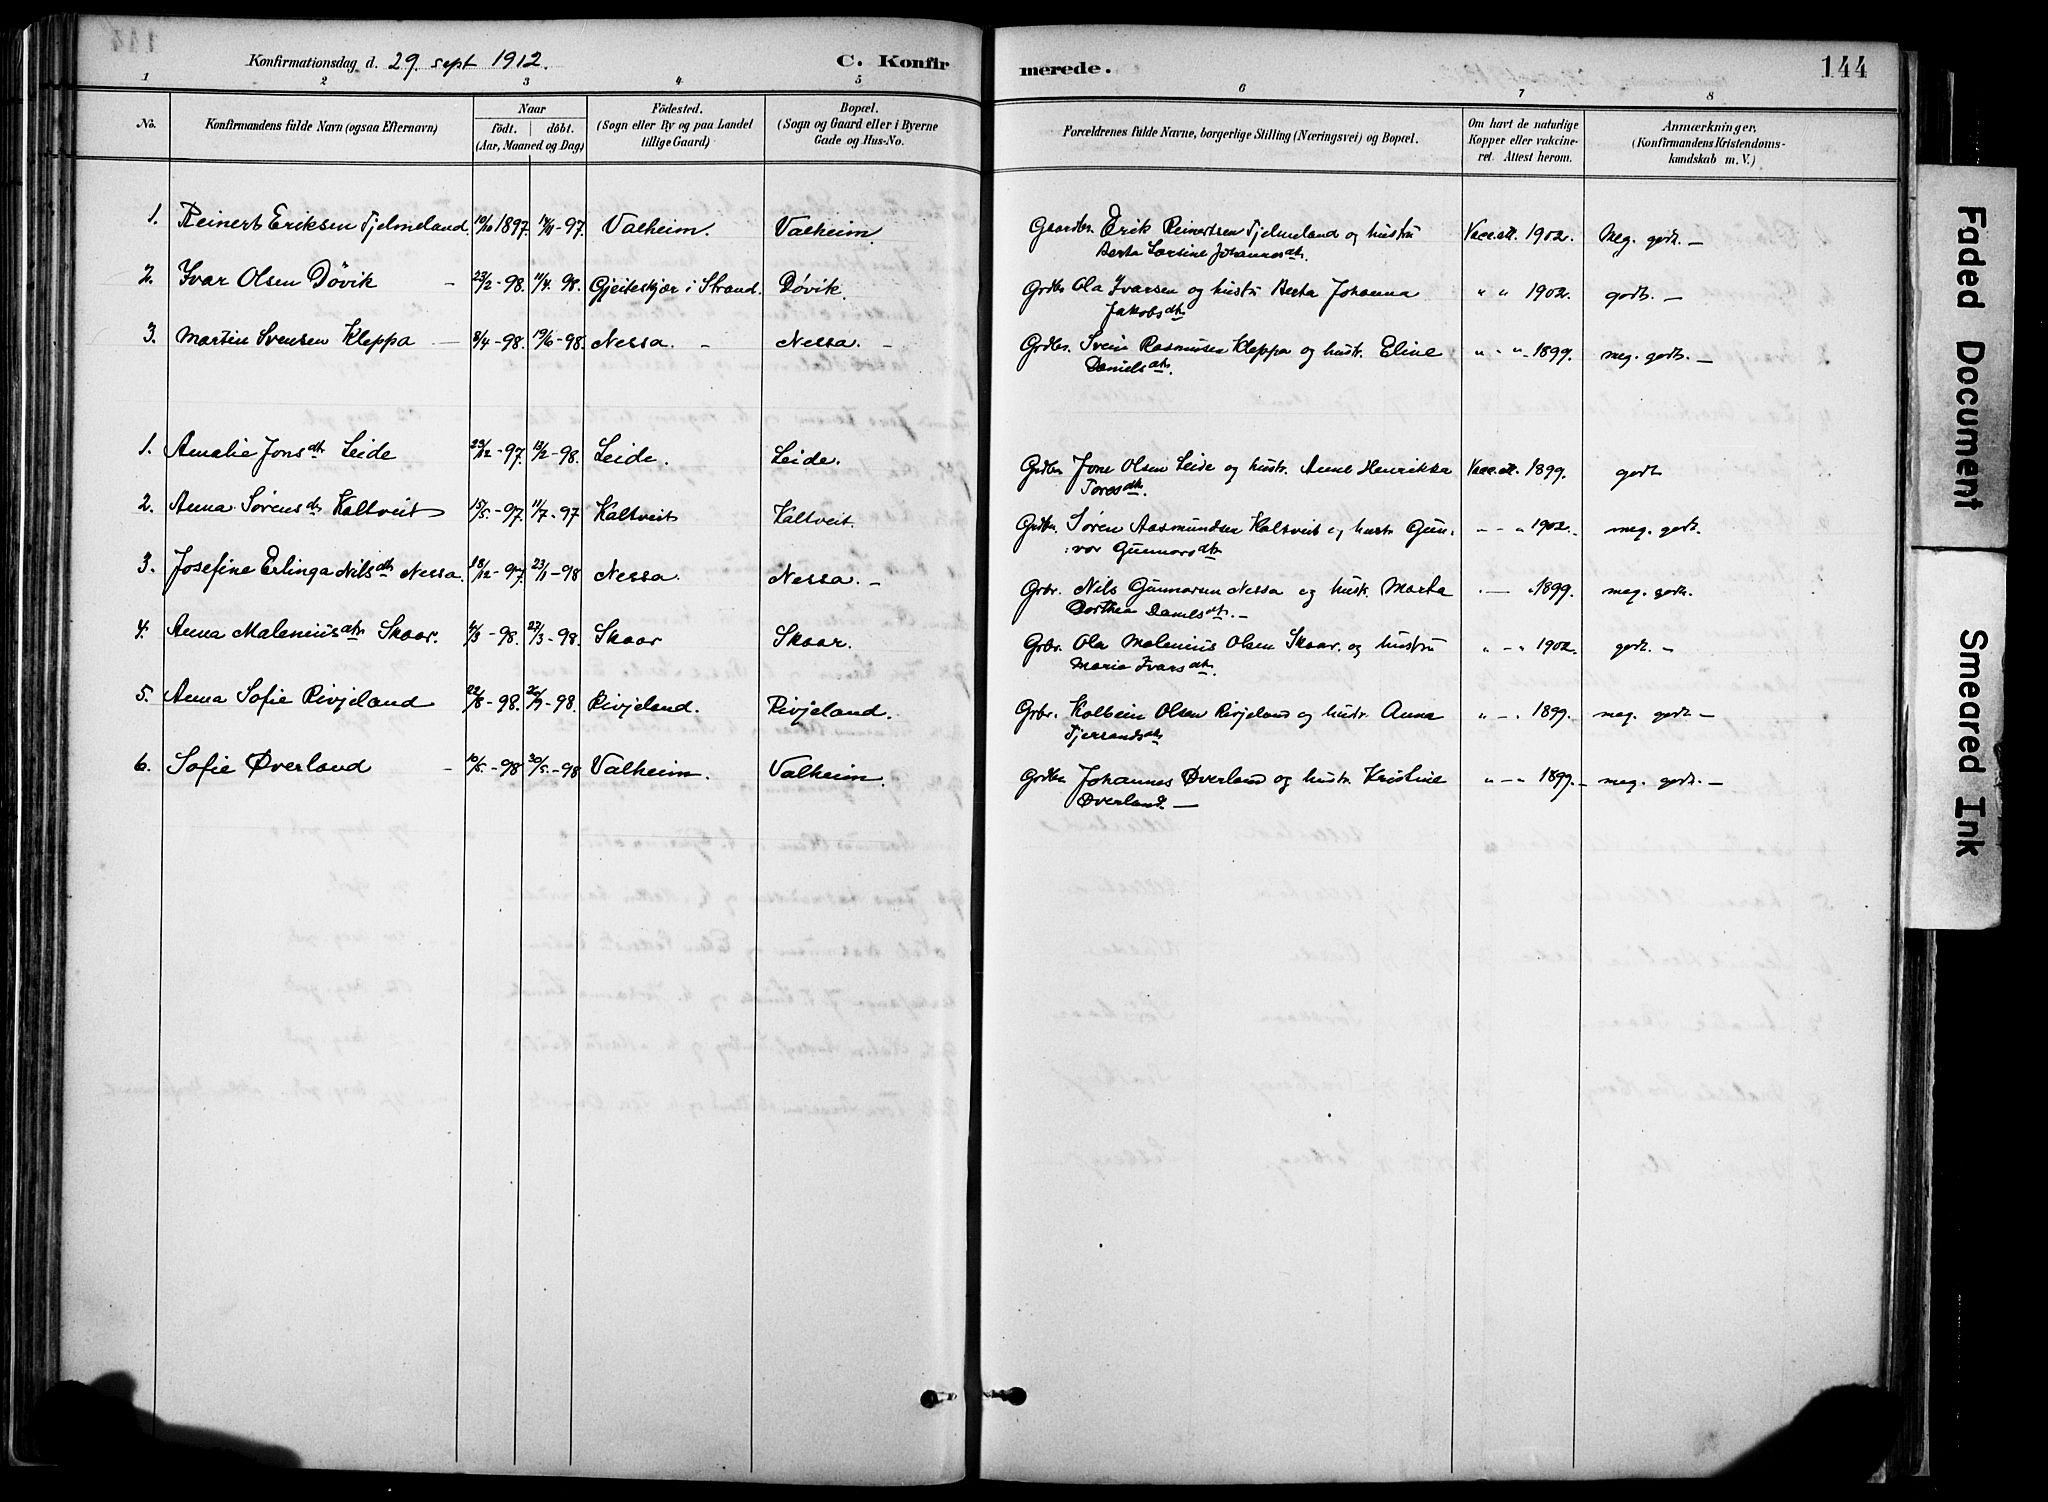 Konfirmationsdag d. 29. sept 1912. C. Konfir merede. 144
1 2 3 4 5 6 7 8
No.
Konfirmandens fulde Navn (ogsaa Efternavn)
Naar
födt. döbt.
(Aar, Maaned og Dag)
Födested.
(Sogn eller By og paa Landet
tillige Gaard)
Bopæl.
(Sogn og Gaard eller i Byerne
Gade og Hus-No.
Forældrenes fulde Navne, borgerlige Stilling (Næringsvei) og Bopæl.
Om havt de naturlige
Kopper eller vakcine-
ret. Attest herom.
Anmærkninger,
(Konfirmandens Kristendoms-
kundskab m. V.)
1. Reinert Eriksen Tjelmeland 10/10 1897. 14/11-97. Valheim. Valheim. Gaardbr. Erik Reinertsen Tjelmeland og hustru Vacc.att. 1902. Meg. godt. —
Berta Sørine Johannesdtr.
2. Ivar Olsen Døvik — 23/2-98. 11/4. 98. Gjeiteskjær i Strand. Døvik. Grdbr Ola Ivarsen og hustu Berta Johanna " " 1902. godt. —
Jakobsdtr
3. Martin Svensen Kleppa — 8/4-98. 19/6-98. Nessa. - Nessa. - Grdbr. Svein Rasmusen Kleppa og hustr. Eline " - " 1899. meg. godt. —
Danielsdtr.
1. Amalie Jonsdtr Leide 23/12-97. 13/2-98. Leide. Leide. Grdbr Jone Olsen Leide og hustr. Anne Henrikka Vacc.att. 1899. godt
Toresdtr.
2. Anna Sørensdtr Kaltveit 15/5-97. 11/7-97 Kaltveit Kaltveit. Grdbr. Søren Aasmundsen Kaltveit og hustr Gun- - - " 1902. meg. godt.
:vor Gunnarsdtr
3. Josefine Erlinga Nilsdtr Nessa. 18/12-97. 23/1-98 Nessa. Nessa. - Grbr. Nils Gunnarsen Nessa og hustr. Marta . — . 1899. meg. godt.
Dorthea Danielsdtr. —
4. Anna Maleniusdtr Skaar. 4/3-98. 27/3-98. Skaar Skaar. Grbr. Ola Malenius Olsen Skaar. og hustru " - " 1902. godt. -
Maria Ivarsdtr.
5. Anna Sofie Rivjeland 22/6-98. -98. Rivjeland. Rivjeland. Grbr. Kolbein Olsen Rivjeland og hustr Anna " - . 1899. meg. godt -
Tjerrandsdtr
6. Sofie Øverland - 10/5.-98 30/5.-98 Valheim. Valheim. Grdbr Johannes Øverland og hustr Kristine " - " 1899. - meg. godt. —
Øverland. —
Faded Document
Smeared Ink